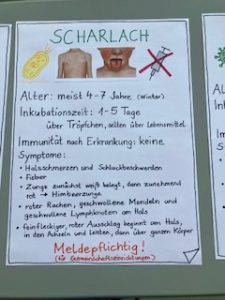 SCHARLACH
Alter: meist 4-7 Jahre (Winter)
Inkubationszeit: 1-5 Tage
über Tröpfchen, selten über Lebensmittel
Immunität nach Erkrankung: keine
Symptome:
• Halsschmerzen und Schluckbeschwerden
• Fieber
• Zunge zunächst weiß belegt, dann zunehmend
rot → Himbeerzunge
• roter Rachen, geschwollene Mandeln und
geschwollene Lymphknoten am Hals
• feinfleckiger, roter Ausschlag beginnt am Hals,
in den Achseln und Leisten, dann über ganzen Körper
Meldepflichtig!
(für Gemeinschaftseinrichtungen)